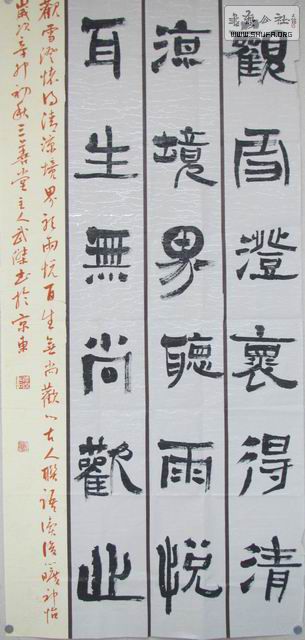 觀雪澄褱得清
涼境界聽雨悅
耳生無尚歡心
觀雪澄懷得清涼境界聽雨悅耳生無尚歡心古人聯語讀後心曠神怡
歲次辛卯初秋三善堂主人武陸書於京東
書法公社
WWW.SHUFA.ORG